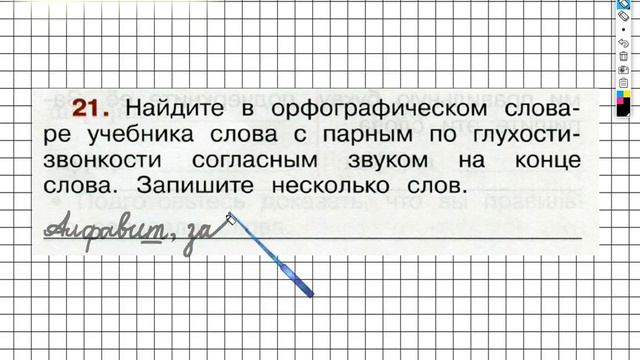 21. Найдите в орфографическом слова-
ре учебника слова с парным по глухости-
звонкости согласным звуком на конце
слова. Запишите несколько слов.
Алфавит, за